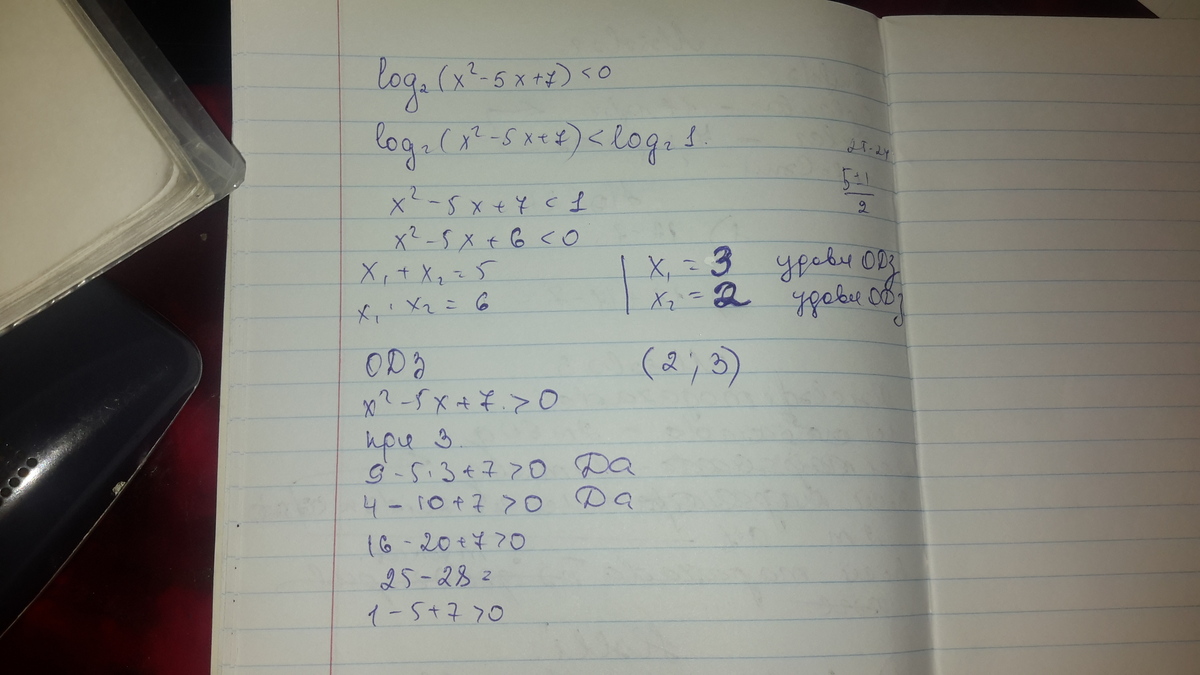 log₂(x²-5x+7)<0
log₂(x²-5x+7)<log₂1.
25-24
5±1
2
x²-5x+7<1
x²-5x+6<0
x₁+x₂=5
x₁·x₂=6
x₁=3 удовл ОДз
x₂=2 удовл ОДз
ОДз
(2;3)
x²-5x+7>0
при 3
9-5·3+7>0 Да
4-10+7>0 Да
16-20+7>0
25-28=
1-5+7>0